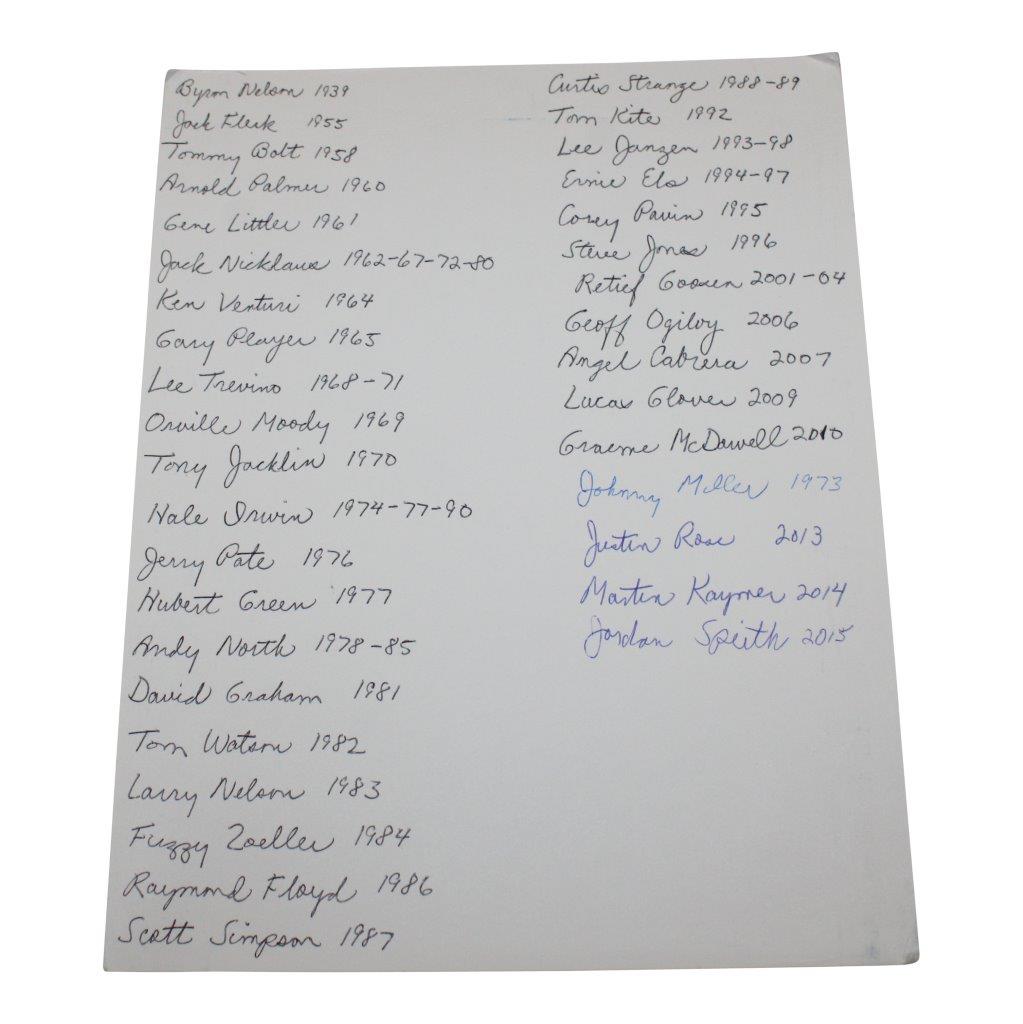 Byron Nelson 1939
Jack Fleck 1955
Tommy Bolt 1958
Arnold Palmer 1960
Gene Littler 1961
Jack Nicklaus 1962-67-72-80
Ken Venturi 1964
Gary Player 1965
Lee Trevino 1968-71
Orville Moody 1969
Tony Jacklin 1970
Hale Irwin 1974-77-90
Jerry Pate 1976
Hubert Green 1977
Andy North 1978-85
David Graham 1981
Tom Watson 1982
Larry Nelson 1983
Fuzzy Zoeller 1984
Raymond Floyd 1986
Scott Simpson 1987
Curtis Strange 1988-89
Tom Kite 1992
Lee Janzen 1993-98
Ernie Els 1994-97
Corey Pavin 1995
Steve Jones 1996
Retief Goosen 2001-04
Geoff Ogilvy 2006
Angel Cabrera 2007
Lucas Glover 2009
Graeme McDowell 2010
Johnny Miller 1973
Justin Rose 2013
Martin Kaymer 2014
Jordan Speith 2015